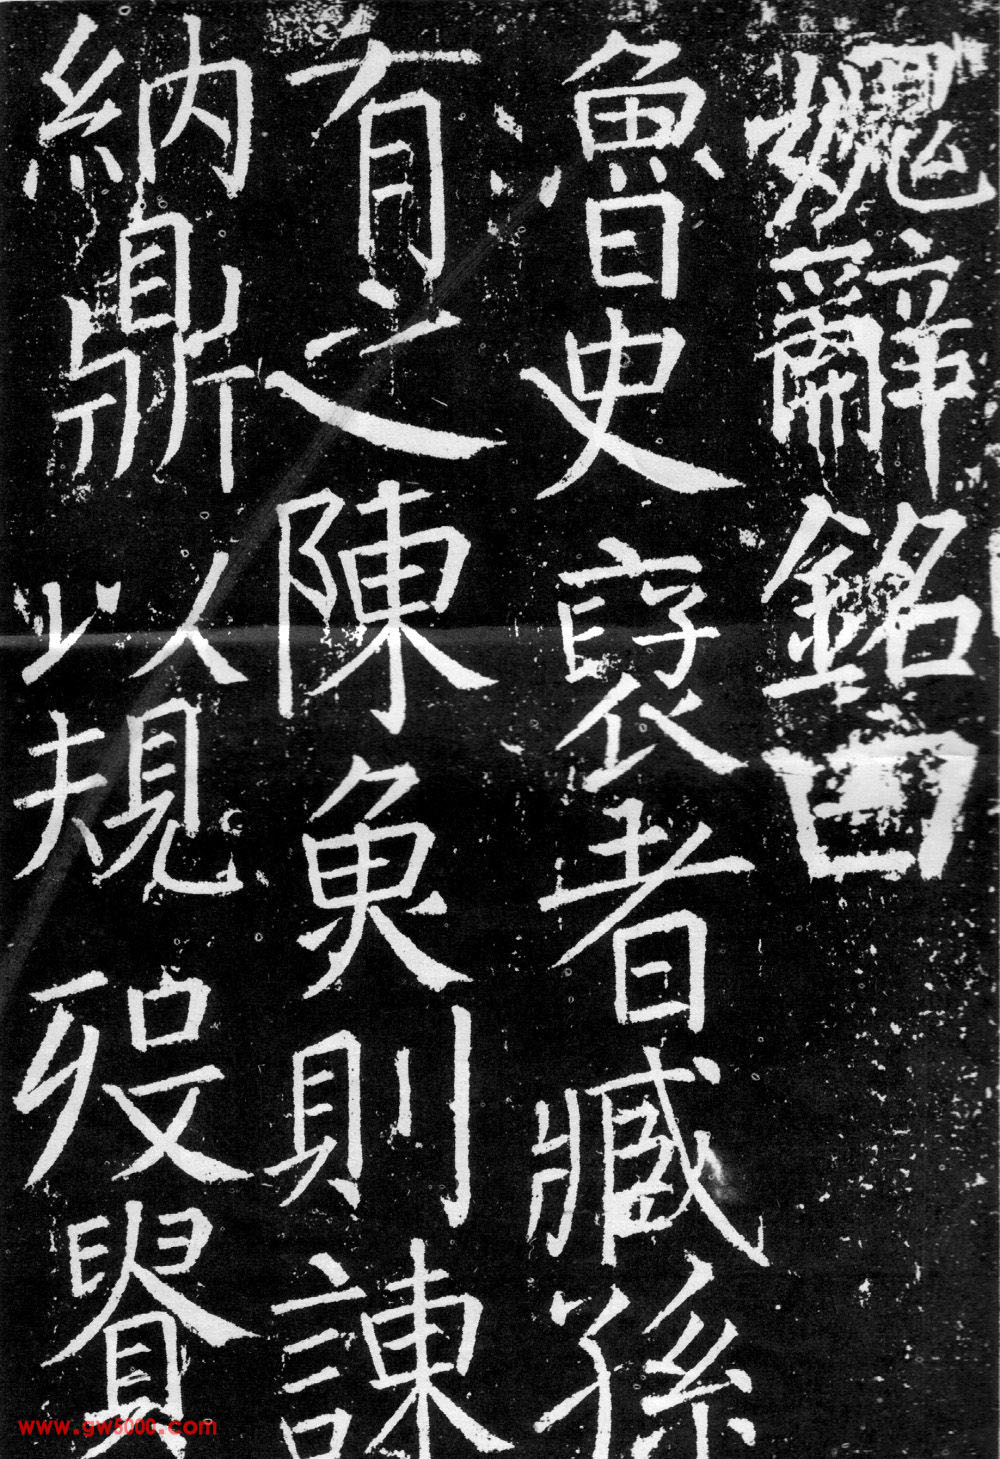 媿辭銘曰
魯史褒者臧孫
有之陳魚則諫
納鼎以規歿貴
www.gw5000.com